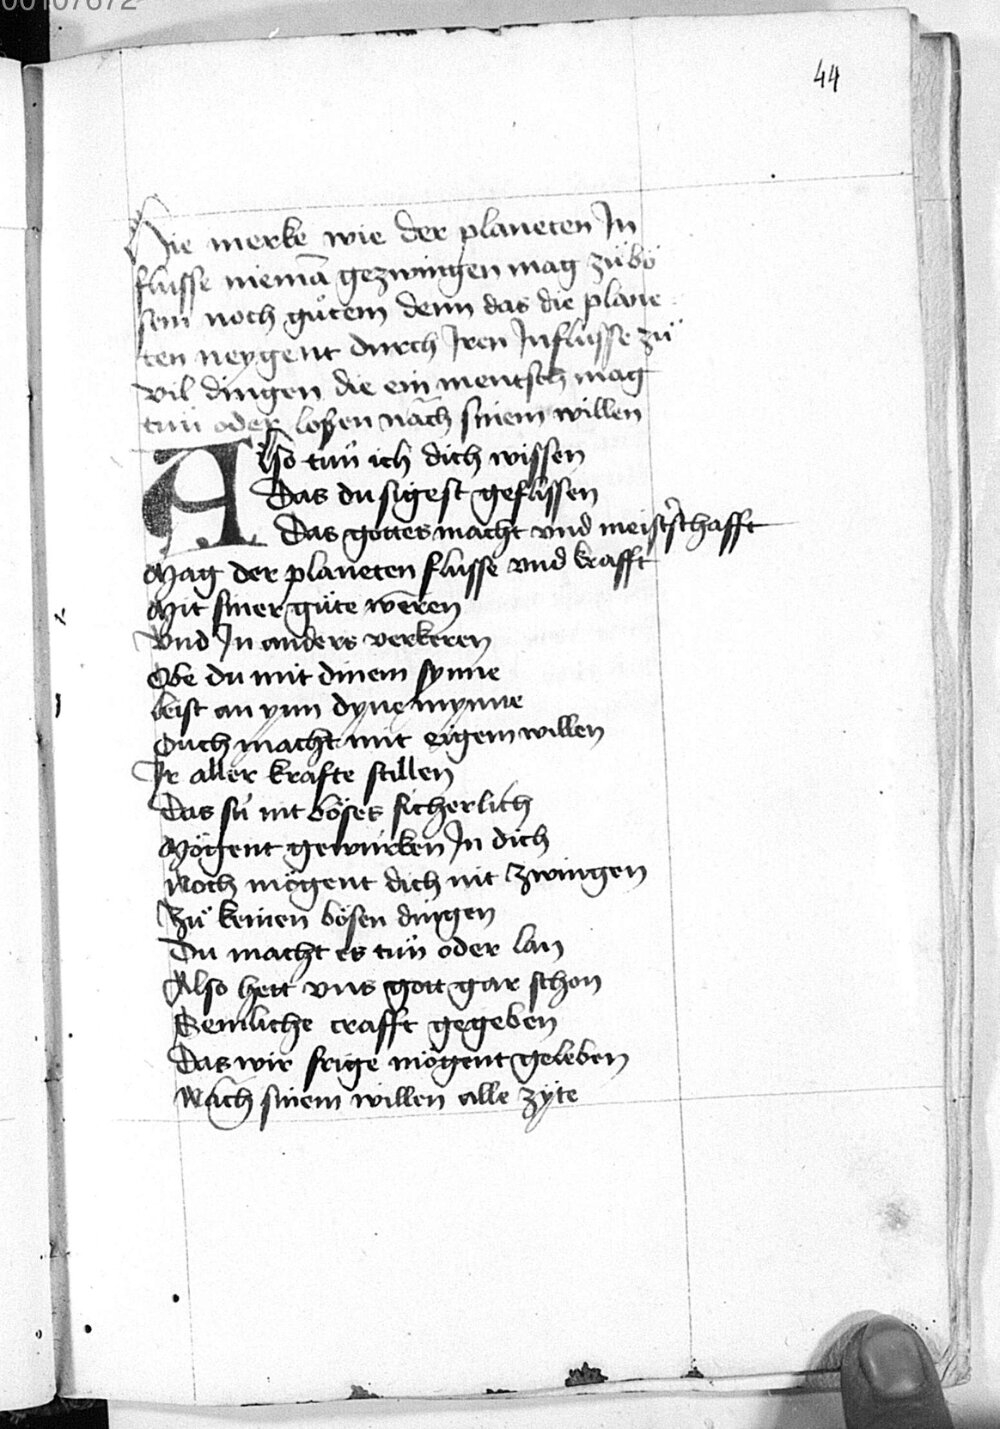 00107672
44
Hie merke wie der planeten In
flusse niemā gezwingen mag zuͤ boͤ
sem noch guͤtem denn das die plane
ten neygent durch Iren Influsse zuͤ
vil dingen die ein mentsch mag
tuͤn oder lossen nāch sinem willen
Also tuͤn ich dich wissen
Das du sigest geflissen
Das gottes macht vnd meistʼschafft
Mag der planeten flusse vnd krafft
Mit siner guͤte weren
Vnd In anders verkeren
Obe du mit dinem synne
leist an ynn dyne mynne
Ouch macht mit eigem willen
Ir aller krafte stillen
Das sú nit boͤses sicherlich
Moͤgent gewúrken In dich
Noch moͤgent dich nit zwingen
Zuͤ keinen boͤsen dingen
Du macht es tuͤn oder lan
Also hett vns gott gar schon
Semliche crafft gegeben
Das wir frige moͤgent geleben
Nāch sinem willen alle zyte